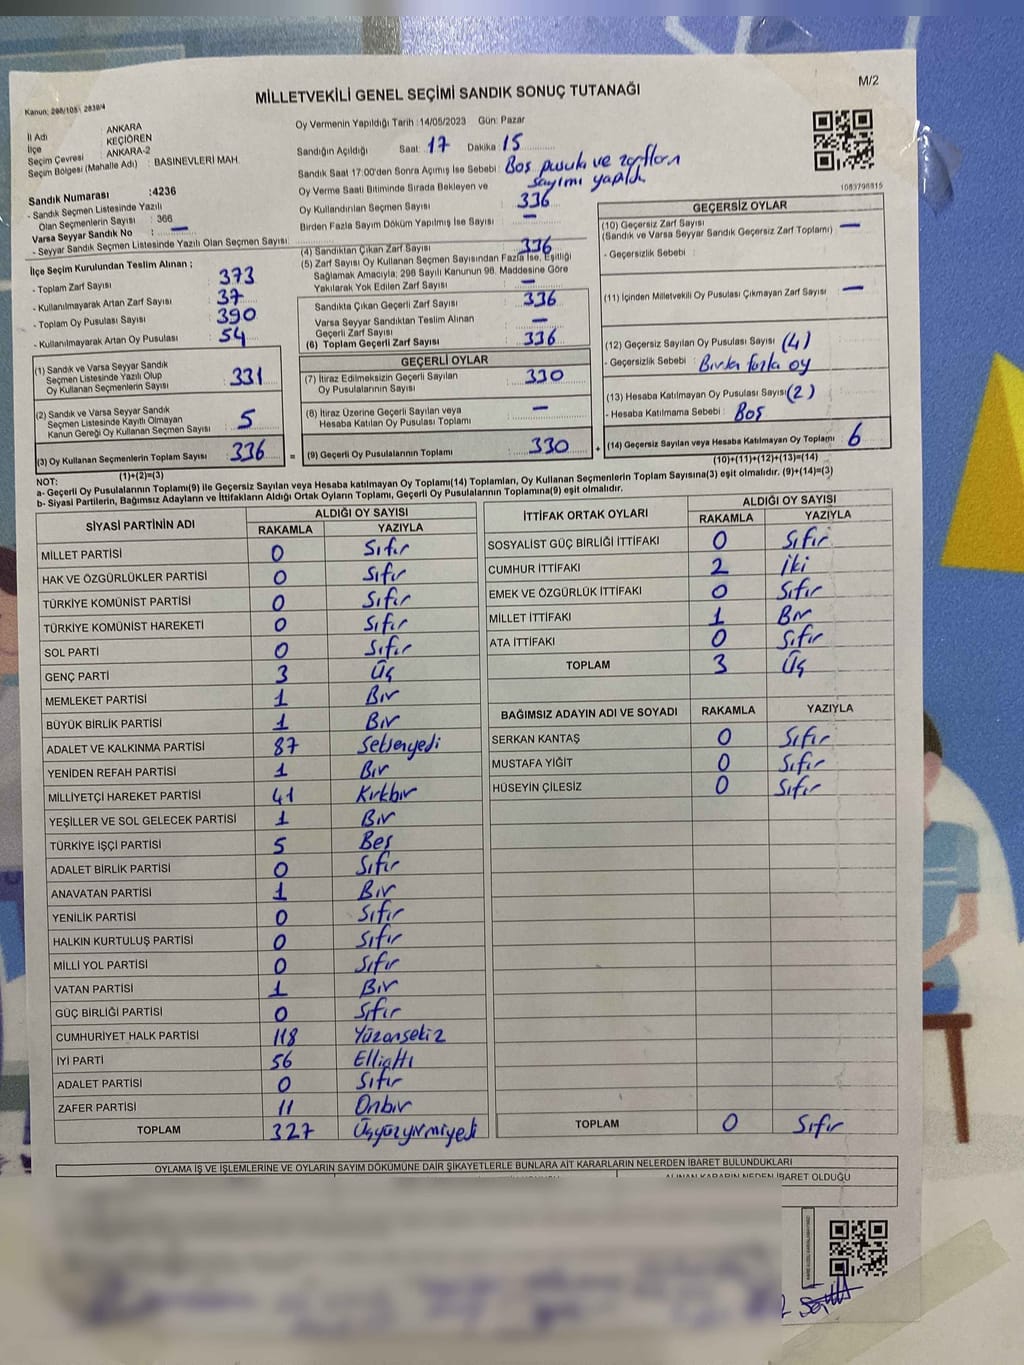 M/2
MİLLETVEKİLİ GENEL SEÇİMİ SANDIK SONUÇ TUTANAĞI
Kanun: 298/105\ 2839/4
İl Adı : ANKARA
İlçe : KEÇİÖREN
Seçim Çevresi : ANKARA-2
Seçim Bölgesi (Mahalle Adı) : BASINEVLERİ MAH.
Oy Vermenin Yapıldığı Tarih :14/05/2023 Gün: Pazar
Sandığın Açıldığı Saat: 17 Dakika: 15
Sandık Saat 17:00'den Sonra Açımış İse Sebebi : Boş pusula ve zarfların
sayımı yapıldı
Oy Verme Saati Bitiminde Sırada Bekleyen ve
Oy Kullandırılan Seçmen Sayısı : 336
Birden Fazla Sayım Döküm Yapılmış İse Sayısı : —
1083798815
Sandık Numarası :4236
- Sandık Seçmen Listesinde Yazılı
Olan Seçmenlerin Sayısı : 366
Varsa Seyyar Sandık No : —
- Seyyar Sandık Seçmen Listesinde Yazılı Olan Seçmen Sayısı:
İlçe Seçim Kurulundan Teslim Alınan ;
- Toplam Zarf Sayısı : 373
- Kullanılmayarak Artan Zarf Sayısı : 37
- Toplam Oy Pusulası Sayısı : 390
- Kullanılmayarak Artan Oy Pusulası : 54
(1) Sandık ve Varsa Seyyar Sandık
Seçmen Listesinde Yazılı Olup
Oy Kullanan Seçmenlerin Sayısı : 331
(2) Sandık ve Varsa Seyyar Sandık
Seçmen Listesinde Kayıtlı Olmayan
Kanun Gereği Oy Kullanan Seçmen Sayısı : 5
(3) Oy Kullanan Seçmenlerin Toplam Sayısı : 336
(1)+(2)=(3)
(4) Sandıktan Çıkan Zarf Sayısı : 336
(5) Zarf Sayısı Oy Kullanan Seçmen Sayısından Fazla İse, Eşitliği
Sağlamak Amacıyla; 298 Sayılı Kanunun 98. Maddesine Göre
Yakılarak Yok Edilen Zarf Sayısı : —
Sandıkta Çıkan Geçerli Zarf Sayısı : 336
Varsa Seyyar Sandıktan Teslim Alınan
Geçerli Zarf Sayısı : —
(6) Toplam Geçerli Zarf Sayısı : 336
GEÇERLİ OYLAR
(7) İtiraz Edilmeksizin Geçerli Sayılan
Oy Pusulalarının Sayısı : 330
(8) İtiraz Üzerine Geçerli Sayılan veya
Hesaba Katılan Oy Pusulası Toplamı : —
= (9) Geçerli Oy Pusulalarının Toplamı : 330 +
GEÇERSİZ OYLAR
(10) Geçersiz Zarf Sayısı : —
(Sandık ve Varsa Seyyar Sandık Geçersiz Zarf Toplamı)
- Geçersizlik Sebebi :
(11) İçinden Milletvekili Oy Pusulası Çıkmayan Zarf Sayısı : —
(12) Geçersiz Sayılan Oy Pusulası Sayısı : (4)
- Geçersizlik Sebebi : Birden fazla oy
(13) Hesaba Katılmayan Oy Pusulası Sayısı : (2)
- Hesaba Katılmama Sebebi : Boş
(14) Geçersiz Sayılan veya Hesaba Katılmayan Oy Toplamı : 6
(10)+(11)+(12)+(13)=(14)
NOT:
a- Geçerli Oy Pusulalarının Toplamı(9) ile Geçersiz Sayılan veya Hesaba katılmayan Oy Toplamı(14) Toplamları, Oy Kullanan Seçmenlerin Toplam Sayısına(3) eşit olmalıdır. (9)+(14)=(3)
b- Siyasi Partilerin, Bağımsız Adayların ve İttifakların Aldığı Ortak Oyların Toplamı, Geçerli Oy Pusulalarının Toplamına(9) eşit olmalıdır.
SİYASİ PARTİNİN ADI ALDIĞI OY SAYISI
RAKAMLA YAZIYLA
MİLLET PARTİSİ 0 Sıfır
HAK VE ÖZGÜRLÜKLER PARTİSİ 0 Sıfır
TÜRKİYE KOMÜNİST PARTİSİ 0 Sıfır
TÜRKİYE KOMÜNİST HAREKETİ 0 Sıfır
SOL PARTİ 0 Sıfır
GENÇ PARTİ 3 Üç
MEMLEKET PARTİSİ 1 Bir
BÜYÜK BİRLİK PARTİSİ 1 Bir
ADALET VE KALKINMA PARTİSİ 87 Seksenyedi
YENİDEN REFAH PARTİSİ 1 Bir
MİLLİYETÇİ HAREKET PARTİSİ 41 Kırkbir
YEŞİLLER VE SOL GELECEK PARTİSİ 1 Bir
TÜRKİYE İŞÇİ PARTİSİ 5 Beş
ADALET BİRLİK PARTİSİ 0 Sıfır
ANAVATAN PARTİSİ 1 Bir
YENİLİK PARTİSİ 0 Sıfır
HALKIN KURTULUŞ PARTİSİ 0 Sıfır
MİLLİ YOL PARTİSİ 0 Sıfır
VATAN PARTİSİ 1 Bir
GÜÇ BİRLİĞİ PARTİSİ 0 Sıfır
CUMHURİYET HALK PARTİSİ 118 Yüzonsekiz
İYİ PARTİ 56 Ellialtı
ADALET PARTİSİ 0 Sıfır
ZAFER PARTİSİ 11 Onbir
TOPLAM 327 Üçyüzyirmiyedi
İTTİFAK ORTAK OYLARI ALDIĞI OY SAYISI
RAKAMLA YAZIYLA
SOSYALİST GÜÇ BİRLİĞİ İTTİFAKI 0 Sıfır
CUMHUR İTTİFAKI 2 İki
EMEK VE ÖZGÜRLÜK İTTİFAKI 0 Sıfır
MİLLET İTTİFAKI 1 Bir
ATA İTTİFAKI 0 Sıfır
TOPLAM 3 Üç
BAĞIMSIZ ADAYIN ADI VE SOYADI RAKAMLA YAZIYLA
SERKAN KANTAŞ 0 Sıfır
MUSTAFA YİĞİT 0 Sıfır
HÜSEYİN ÇİLESİZ 0 Sıfır
TOPLAM 0 Sıfır
OYLAMA İŞ VE İŞLEMLERİNE VE OYLARIN SAYIM DÖKÜMÜNE DAİR ŞİKAYETLERLE BUNLARA AİT KARARLARIN NELERDEN İBARET BULUNDUKLARI
ALINAN KARARIN NEDEN İBARET OLDUĞU